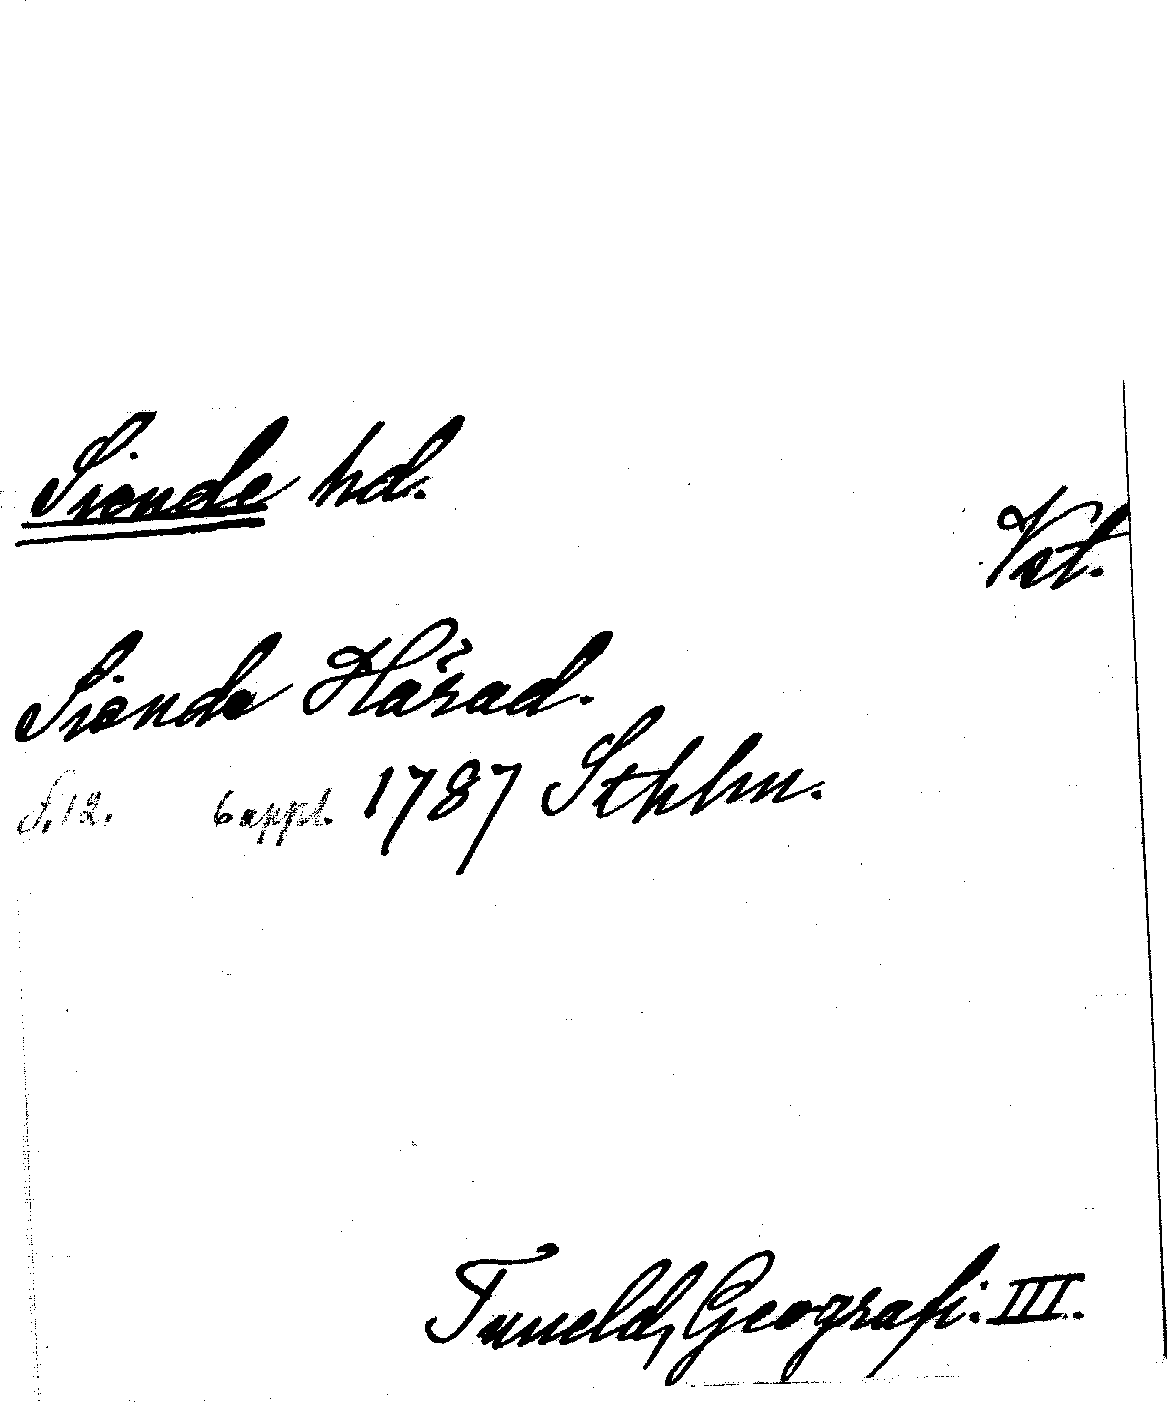 Sionde hd.
Vst.
Sionde Härad.
S. 12. 6 appl. 1787 Sthlm.
Tuneld, Geografi. III.